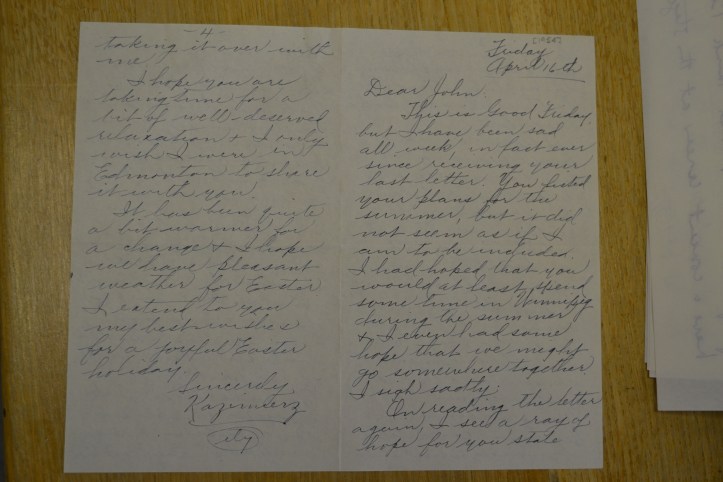 Friday
April 16th
Dear John.
This is Good Friday
but I have been sad
all week, in fact ever
since receiving your
last letter. You listed
your plans for the
summer, but it did
not seem as if I
am to be included.
I had hoped, that you
would at least, spend
some time in Winnipeg
during the summer
& I even had some
hope that we might
go somewhere together
I sigh sadly;
On reading the letter
again, I see a ray of
hope for you state
-4-
taking it over with
me.
I hope you are
taking time for a
bit of well-deserved
relaxation & I only
wish I were in
Edmonton to share
it with you.
It has been quite
a bit warmer for
a change & I hope
we have pleasant
weather for Easter
I extend to you
my best wishes
for a joyful Easter
holiday.
Sincerely
Kazimierz